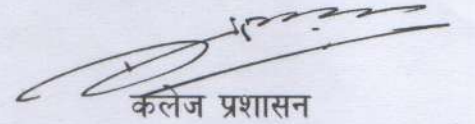 कलेज प्रशासन